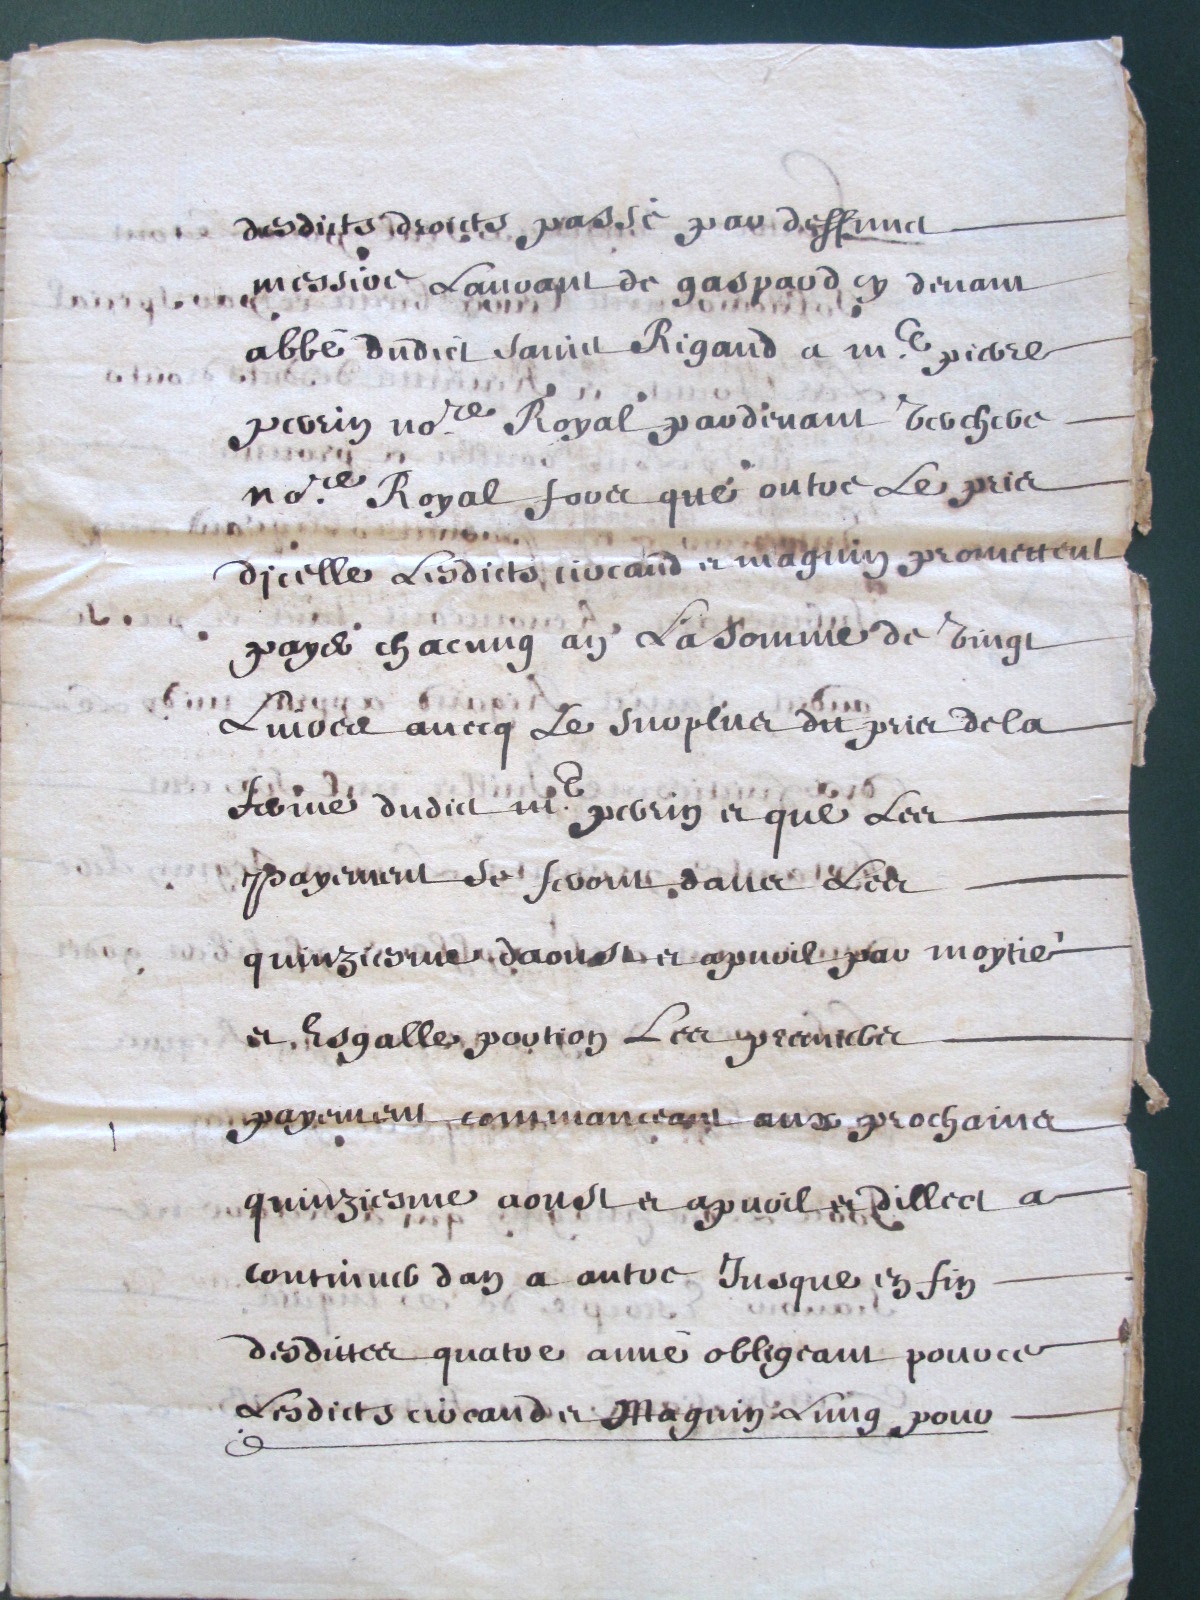 desdicts droicts passé par deffunct
messire Laurant de gaspard cy devant
abbé dudict sainct Rigaud a m.e pierre
perrin no.re Royal pardevant vercherre
no.re Royal sover que outre Le pris
dicelle Lesdicts circaud et maguin promettent
payer chacung an La somme de vingt
Livres avecq Le surplus du pris de la
ferme dudict m.e perrin et que Les
payement se feront dans Les
quinziesme daoust et apvril par moytié
et Esgalle portion Les premiers
payement commanceant aux prochains
quinziesme aoust et apvril et dillect a
continuer dan a autre Jusque en fin
desdittes quatre anné obligeant pource
Lesdicts circaud et Maguin Lung pour